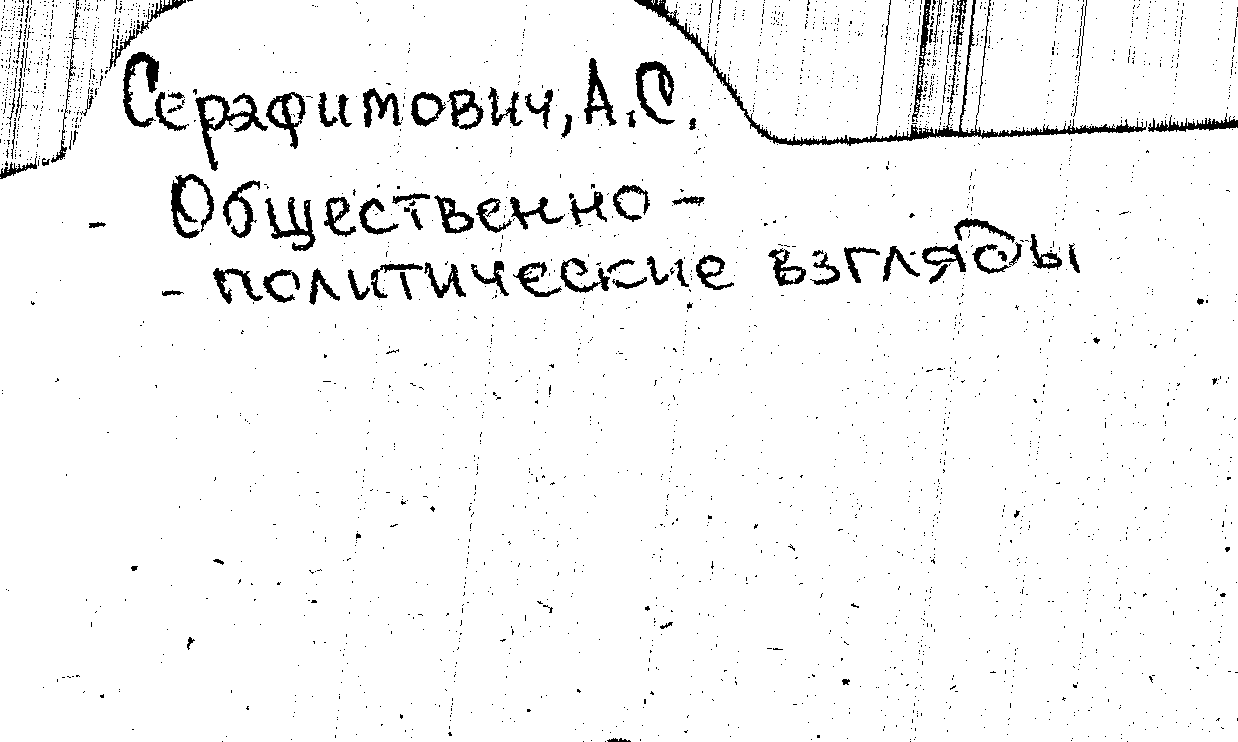 Серафимович, А.С.
- Общественно -
- политические взгляды